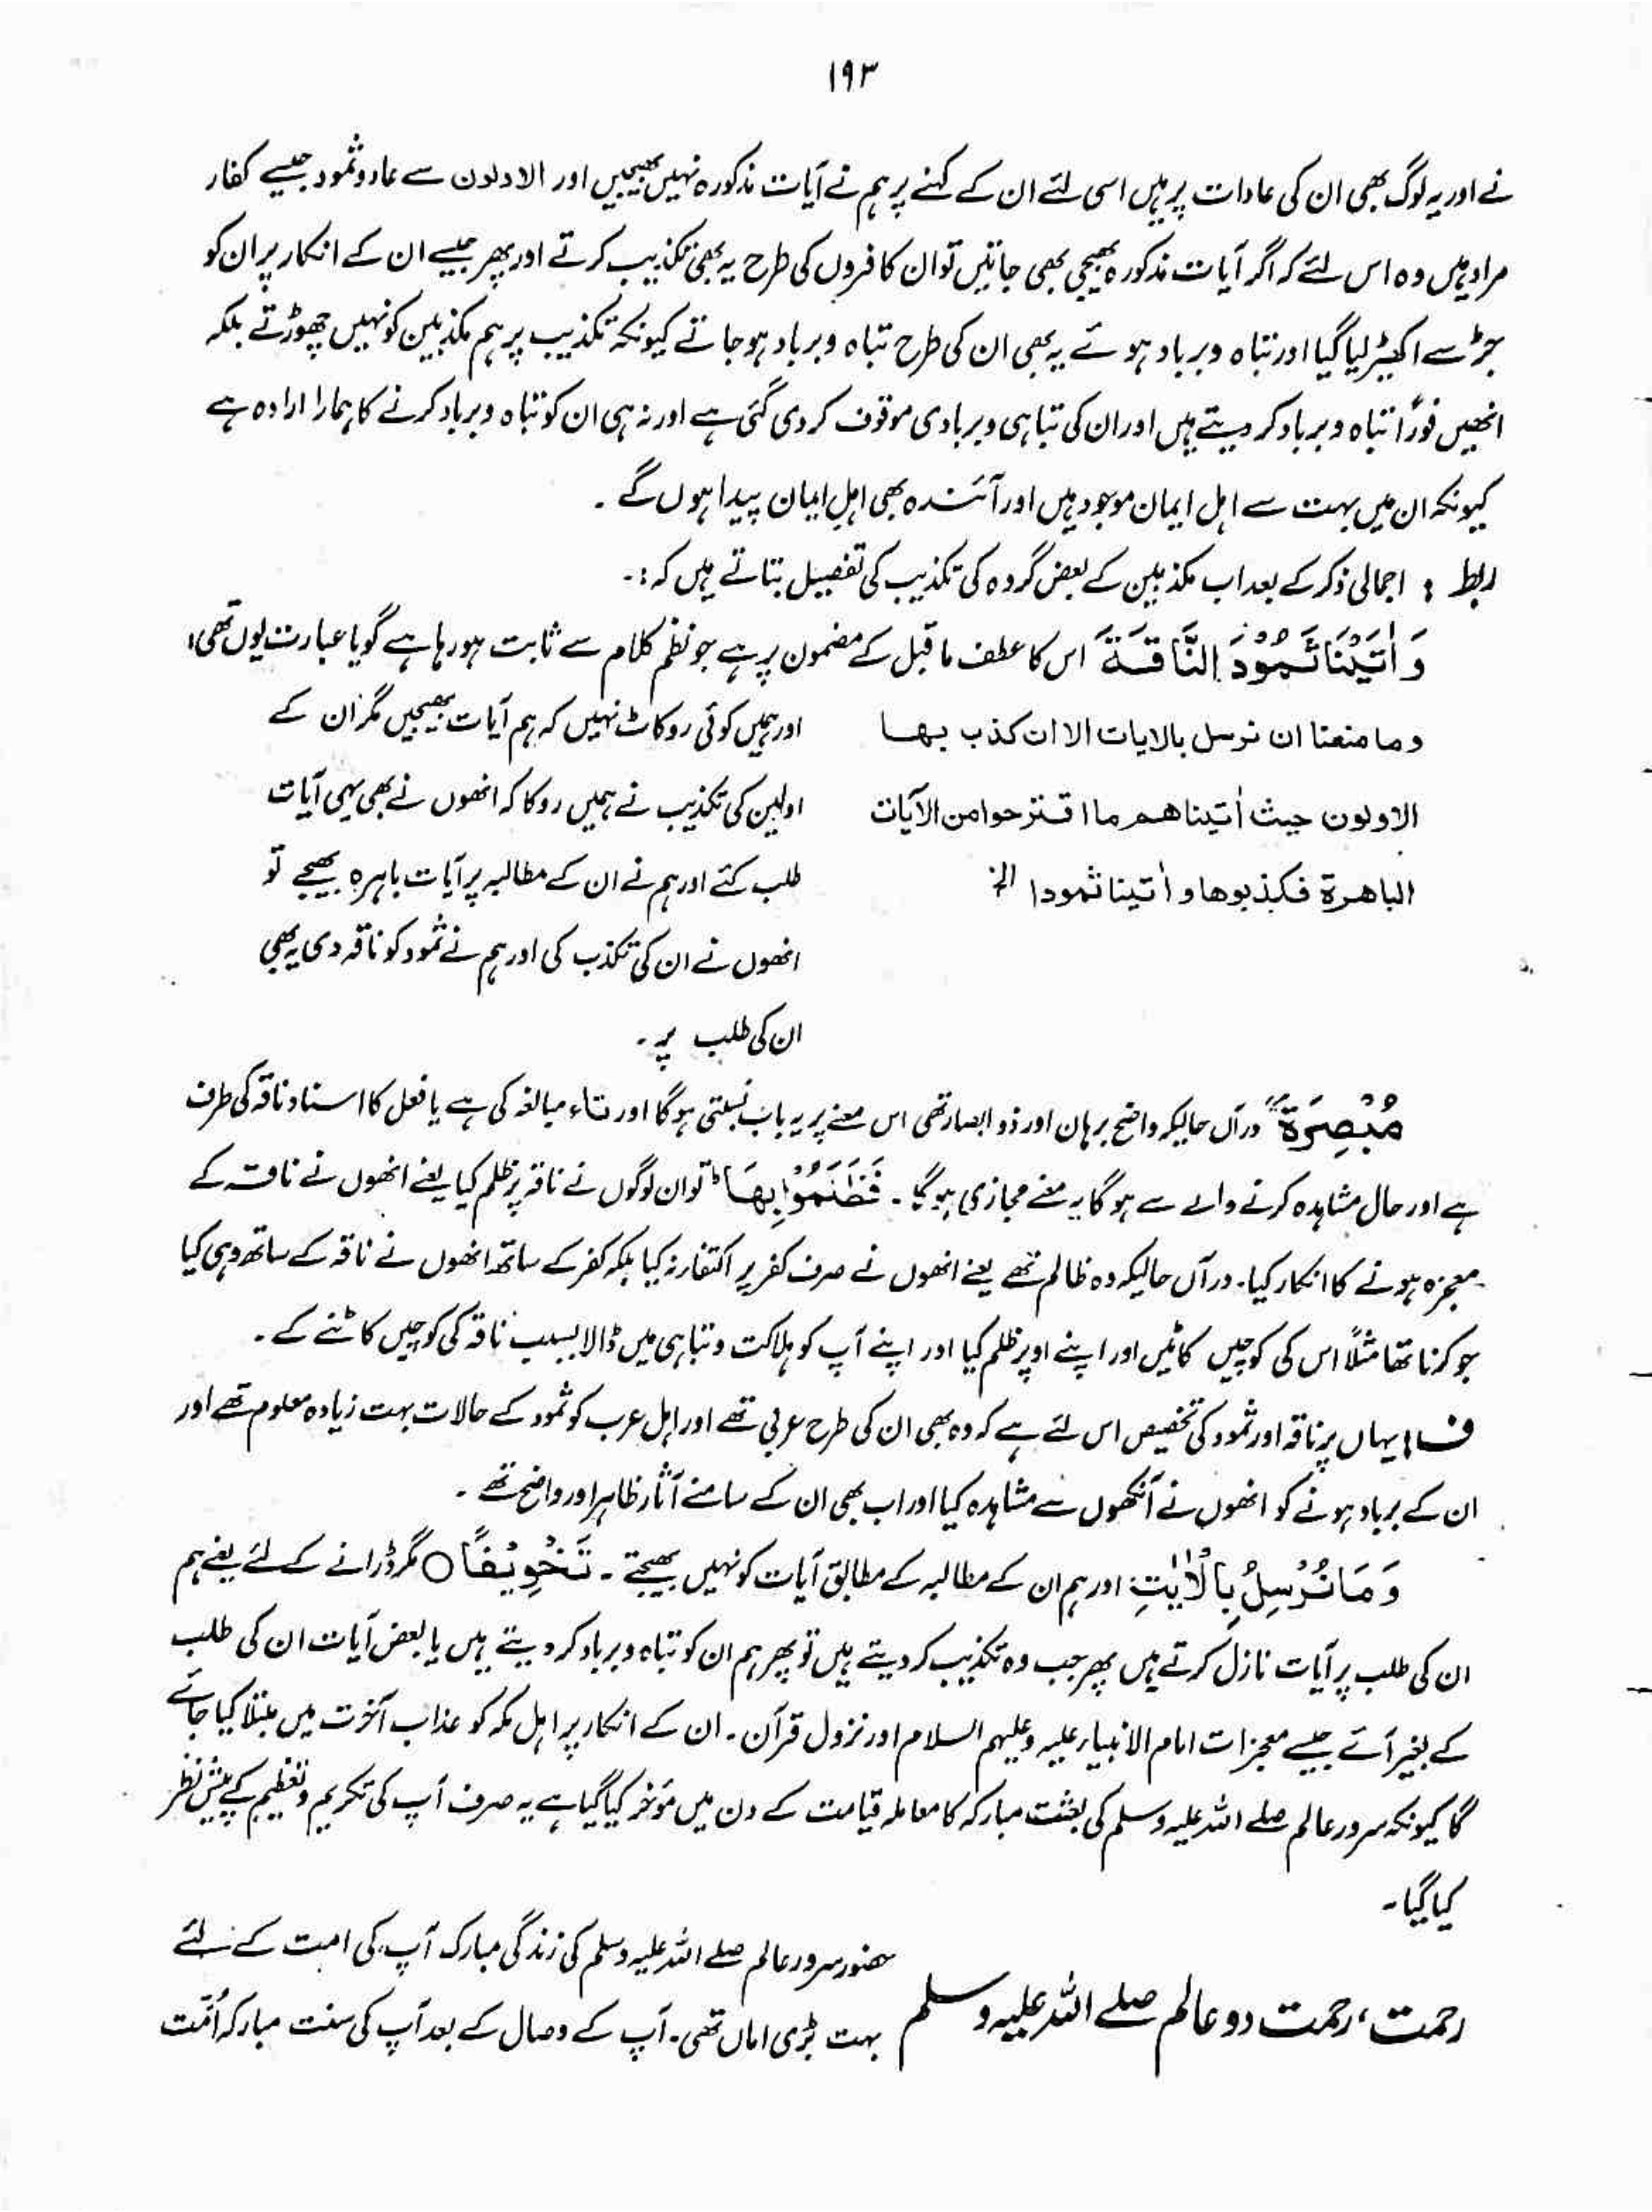 ۱۹۳
نے اور یہ لوگ بھی ان کی عادات پر ہیں اسی لئے ان کے کہنے پر ہم نے آیات مذکورہ نہیں بھیجیں اور الاولون سے عاد و ثمود جیسے کفار
مراد ہیں وہ اس لئے کہ اگر آیات مذکورہ بھیجی بھی جاتیں تو ان کافروں کی طرح یہ بھی تکذیب کرتے اور پھر جیسے ان کے انکار پر ان کو
جڑ سے اکھیڑ لیا گیا اور تباہ و برباد ہوئے یہ بھی ان کی طرح تباہ و برباد ہو جاتے کیونکہ تکذیب پر ہم مکذبین کو نہیں چھوڑتے بلکہ
انھیں فوراً تباہ و برباد کر دیتے ہیں اور ان کی تباہی و بربادی موقوف کر دی گئی ہے اور نہ ہی ان کو تباہ و برباد کرنے کا ہمارا ارادہ ہے
کیونکہ ان میں بہت سے اہل ایمان موجود ہیں اور آئندہ بھی اہلِ ایمان پیدا ہوں گے ۔
ربط : اجمالی ذکر کے بعد اب مکذبین کے بعض گروہ کی تکذیب کی تفصیل بتاتے ہیں کہ :۔
وَاٰتَيْنَا ثَمُوْدَ النَّاقَةَ اس کا عطف ما قبل کے مضمون پر ہے جو نظم کلام سے ثابت ہو رہا ہے گویا عبارت یوں تھی؛
وما منعنا ان نرسل بالایات الا ان کذب بھا
الاولون حیث اٰتیناھم ما اقترحوا من الآیات
الباھرۃ فکذبوھا و اٰتینا ثمودا الخ
اور ہمیں کوئی روکاٹ نہیں کہ ہم آیات بھیجیں مگر ان کے
اولین کی تکذیب نے ہمیں روکا کہ انھوں نے بھی یہی آیات
طلب کئے اور ہم نے ان کے مطالبہ پر آیات باہرہ بھیجے تو
انھوں نے ان کی تکذیب کی اور ہم نے ثمود کو ناقہ دی یہ بھی
ان کی طلب پر ۔
مُبْصِرَةً درآں حالیکہ واضح برہان اور ذو ابصار تھی اس معنے پر یہ باب نسبتی ہوگا اور تاء مبالغہ کی ہے یا فعل کا اسناد ناقہ کی طرف
ہے اور حال مشاہدہ کرنے والے سے ہوگا یہ معنے مجازی ہوگا ۔ فَظَلَمُوْا بِهَا ؕ تو ان لوگوں نے ناقہ پر ظلم کیا یعنے انھوں نے ناقہ کے
معجزہ ہونے کا انکار کیا۔ درآں حالیکہ وہ ظالم تھے یعنے انھوں نے صرف کفر پر اکتفا نہ کیا بلکہ کفر کے ساتھ انھوں نے ناقہ کے ساتھ وہی کیا
جو کرنا تھا مثلاً اس کی کوچیں کاٹیں اور اپنے اوپر ظلم کیا اور اپنے آپ کو ہلاکت و تباہی میں ڈالا بسبب ناقہ کی کوچیں کاٹنے کے ۔
ف : یہاں پر ناقہ اور ثمود کی تخصیص اس لئے ہے کہ وہ بھی ان کی طرح عربی تھے اور اہل عرب کو ثمود کے حالات بہت زیادہ معلوم تھے اور
ان کے برباد ہونے کو انھوں نے آنکھوں سے مشاہدہ کیا اور اب بھی ان کے سامنے آثار ظاہر اور واضح تھے ۔
وَمَا نُرْسِلُ بِالْاٰيٰتِ اور ہم ان کے مطالبہ کے مطابق آیات کو نہیں بھیجتے ۔ تَخْوِيْفًا ○ مگر ڈرانے کے لئے یعنے ہم
ان کی طلب پر آیات نازل کرتے ہیں پھر جب وہ تکذیب کر دیتے ہیں تو پھر ہم ان کو تباہ و برباد کر دیتے ہیں یا بعض آیات ان کی طلب
کے بغیر آئے جیسے معجزات امام الانبیاء علیہ وعلیہم السلام اور نزول قرآن ۔ ان کے انکار پر اہل مکہ کو عذاب آخرت میں مبتلا کیا جائے
گا کیونکہ سرور عالم صلے اللہ علیہ وسلم کی بعثت مبارکہ کا معاملہ قیامت کے دن میں مؤخر کیا گیا ہے یہ صرف آپ کی تکریم و تعظیم کے پیش نظر
کیا گیا ۔
رحمت، رحمت دو عالم صلے اللہ علیہ وسلم
حضور سرور عالم صلے اللہ علیہ وسلم کی زندگی مبارک آپ کی امت کے لئے
بہت بڑی اماں تھی ۔ آپ کے وصال کے بعد آپ کی سنت مبارکہ اُمّت